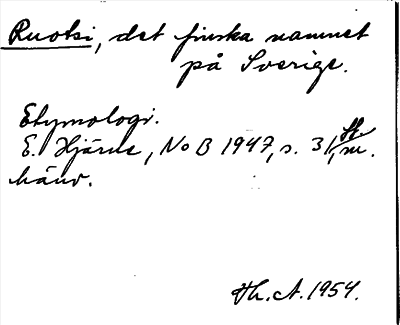 Ruotsi, det finska namnet
på Sverige.
Etymologi.
E. Hjärne, NoB 1947, s. 31, m.
hänv.
Th. A. 1954.